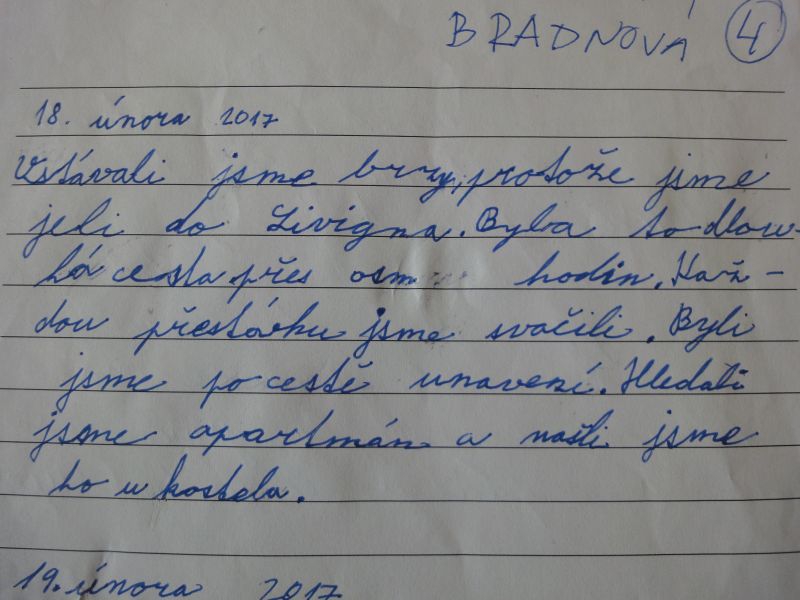 BRADNOVÁ 4
18. února 2017
Vstávali jsme brzy, protože jsme
jeli do Livigna. Byla to dlou-
há cesta přes osm hodin. Kaž-
dou přestávku jsme svačili. Byli
jsme po cestě unavení. Hledali
jsme apartmán a našli jsme
ho u kostela.
19. února 2017